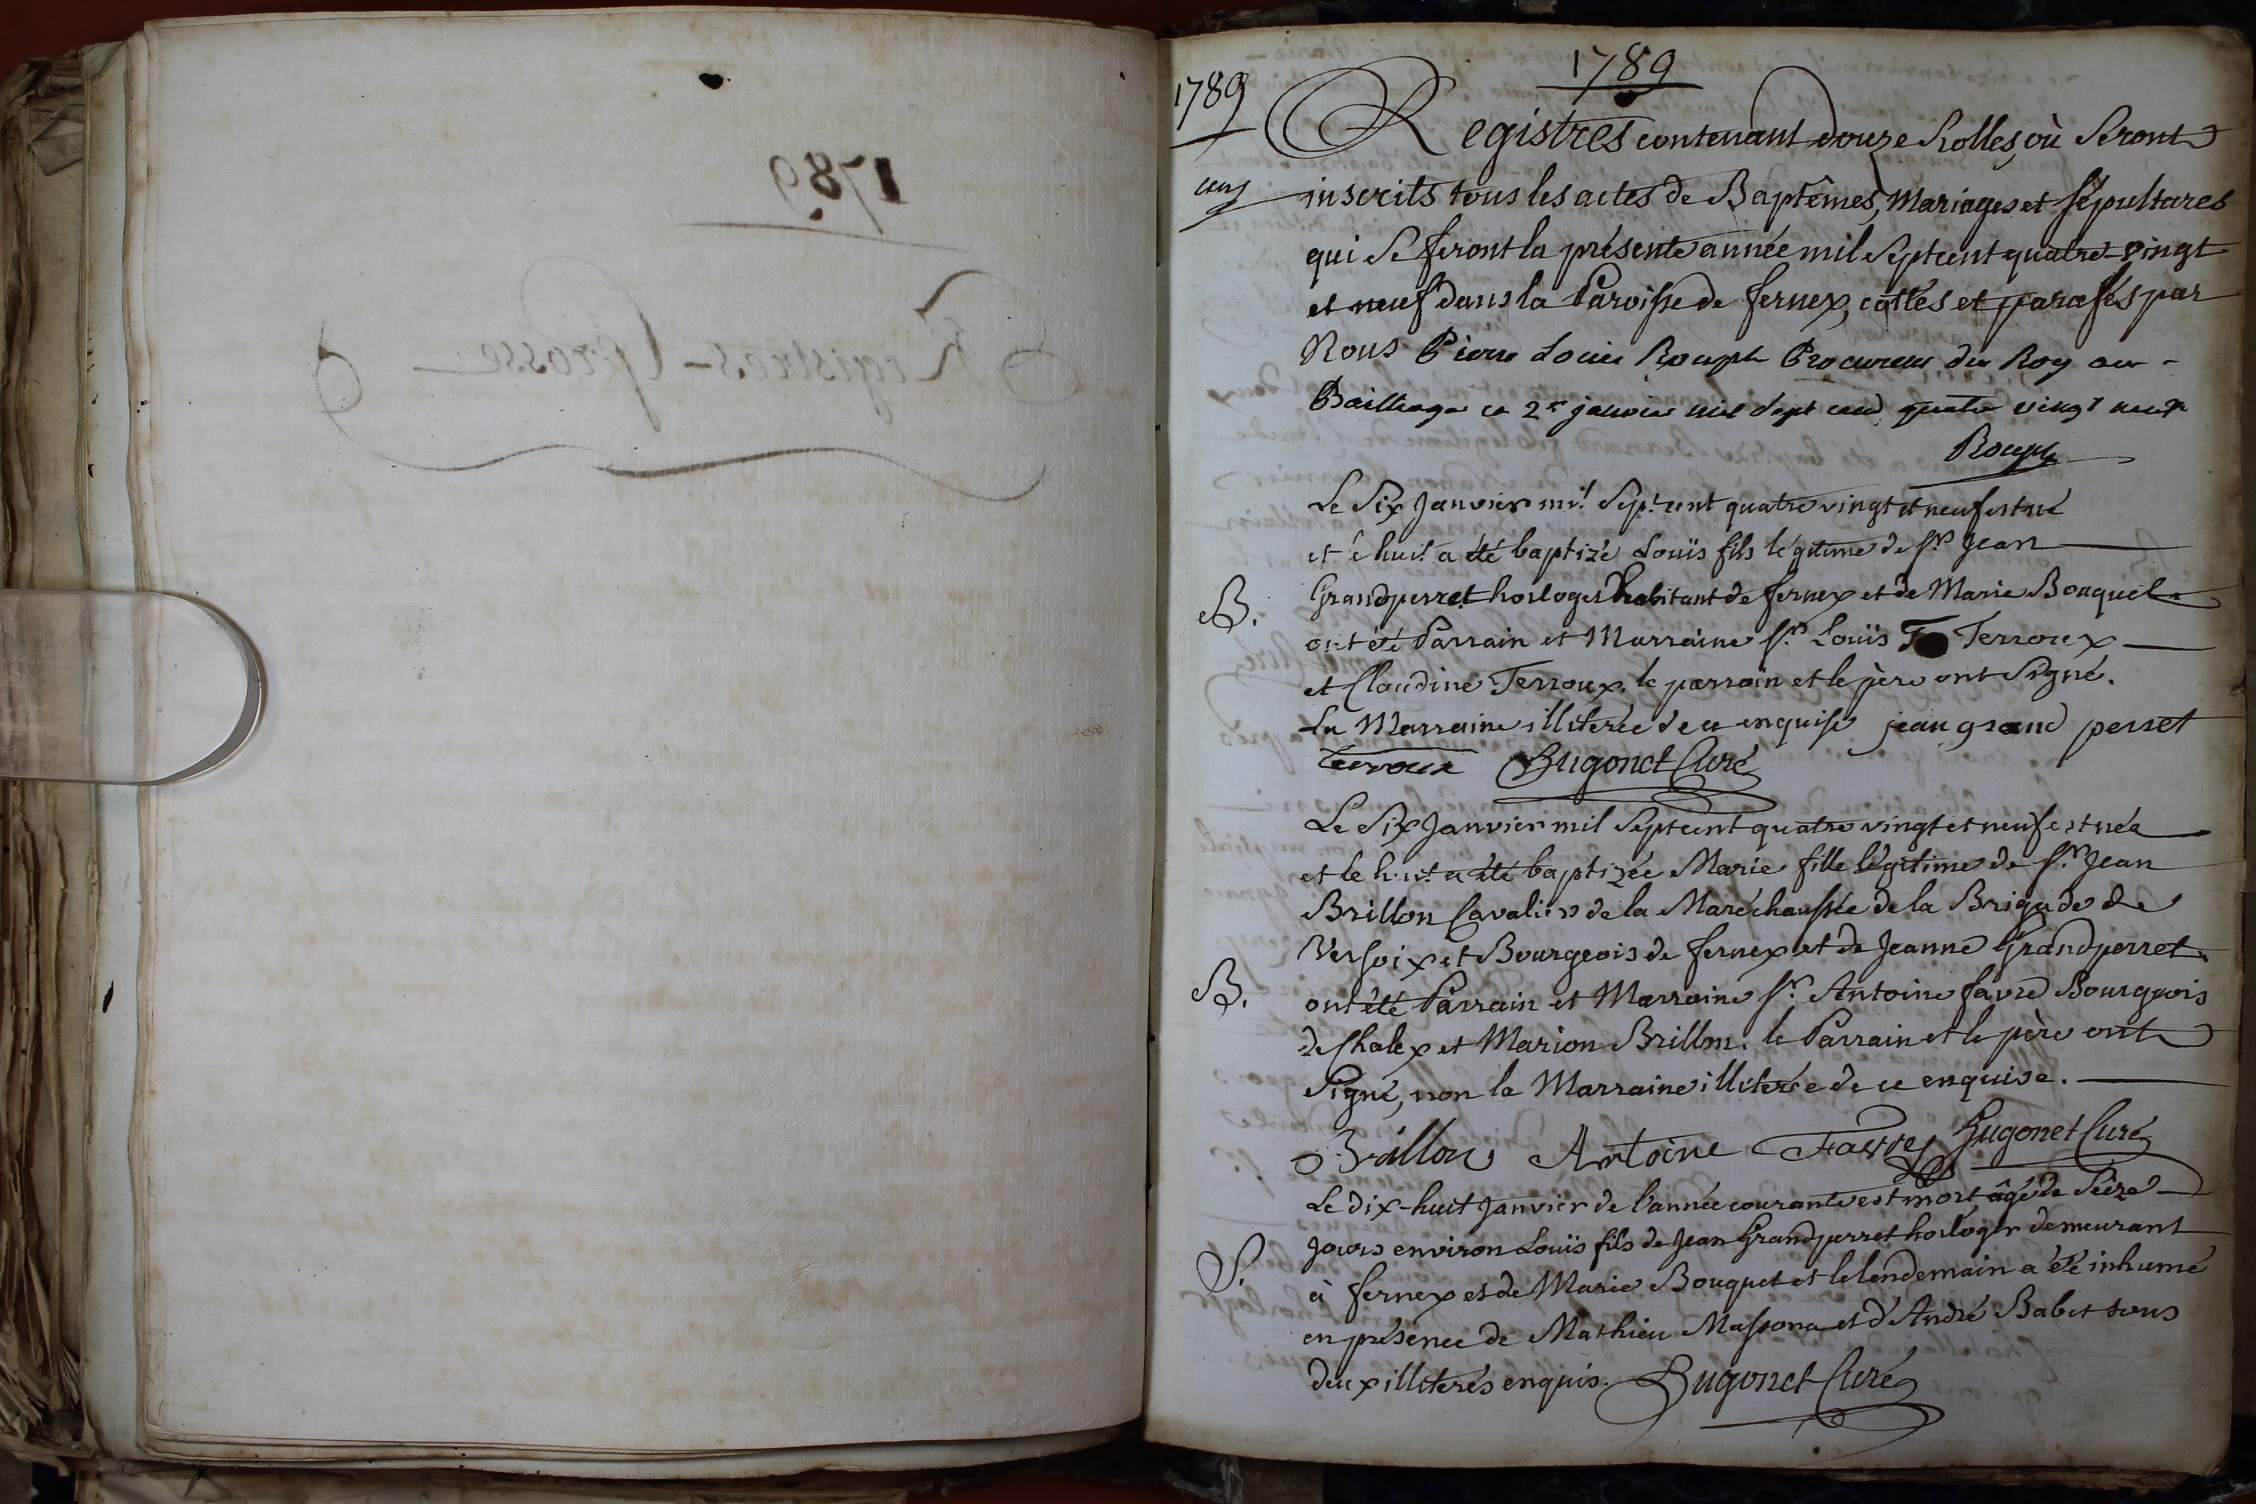 1789
1789
Registres contenant douze Rolles, où Seront
un inscrits tous les actes de Baptêmes, Mariages et Sépultures
qui Se feront la présente année mil Sept cent quatre-vingt
et neuf dans la Paroisse de fernex, cottés et parafés par
Nous Pierre Louis Rouph Procureur du Roy au -
Bailliage ce 2e janvier mil Sept cent quatre vingt neuf
Rouph
Le Six Janvier mil Sept cent quatre vingt et neuf est né
et le huit a été baptizé Louïs fils légitime de Sr. Jean
B. Grandperret horloger habitant de fernex et de Marie Bouquet
ont été Parrain et Marraine Sr. Louïs Terroux
et Claudine Terroux. le parrain et le père ont Signé.
La Marraine illiterée de ce enquise jean grand perret
Terroux Hugonet Curé
Le Six Janvier mil Sept cent quatre vingt et neuf est née
et le huit a été baptizée Marie fille légitime de Sr. Jean
Brillon Cavalier de la Maréchaussée de la Brigade de
Versoix et Bourgeois de fernex et de Jeanne Grandperret.
B. ont été Parrain et Marraine Sr. Antoine favre Bourgeois
de Chalex et Marion Brillon. le Parrain et le père ont
Signé, non la Marraine illiterée de ce enquise.
Brillon Antoine Favre Hugonet Curé
Le dix-huit Janvier de l'année courante est mort, âgé de Seize
Jours environ Louïs fils de Jean Grandperret horloger demeurant
S. à fernex et de Marie Bouquet et le lendemain a été inhumé
en présence de Mathieu Massona et d'André Babet tous
deux illiterés enquis. Hugonet Curé